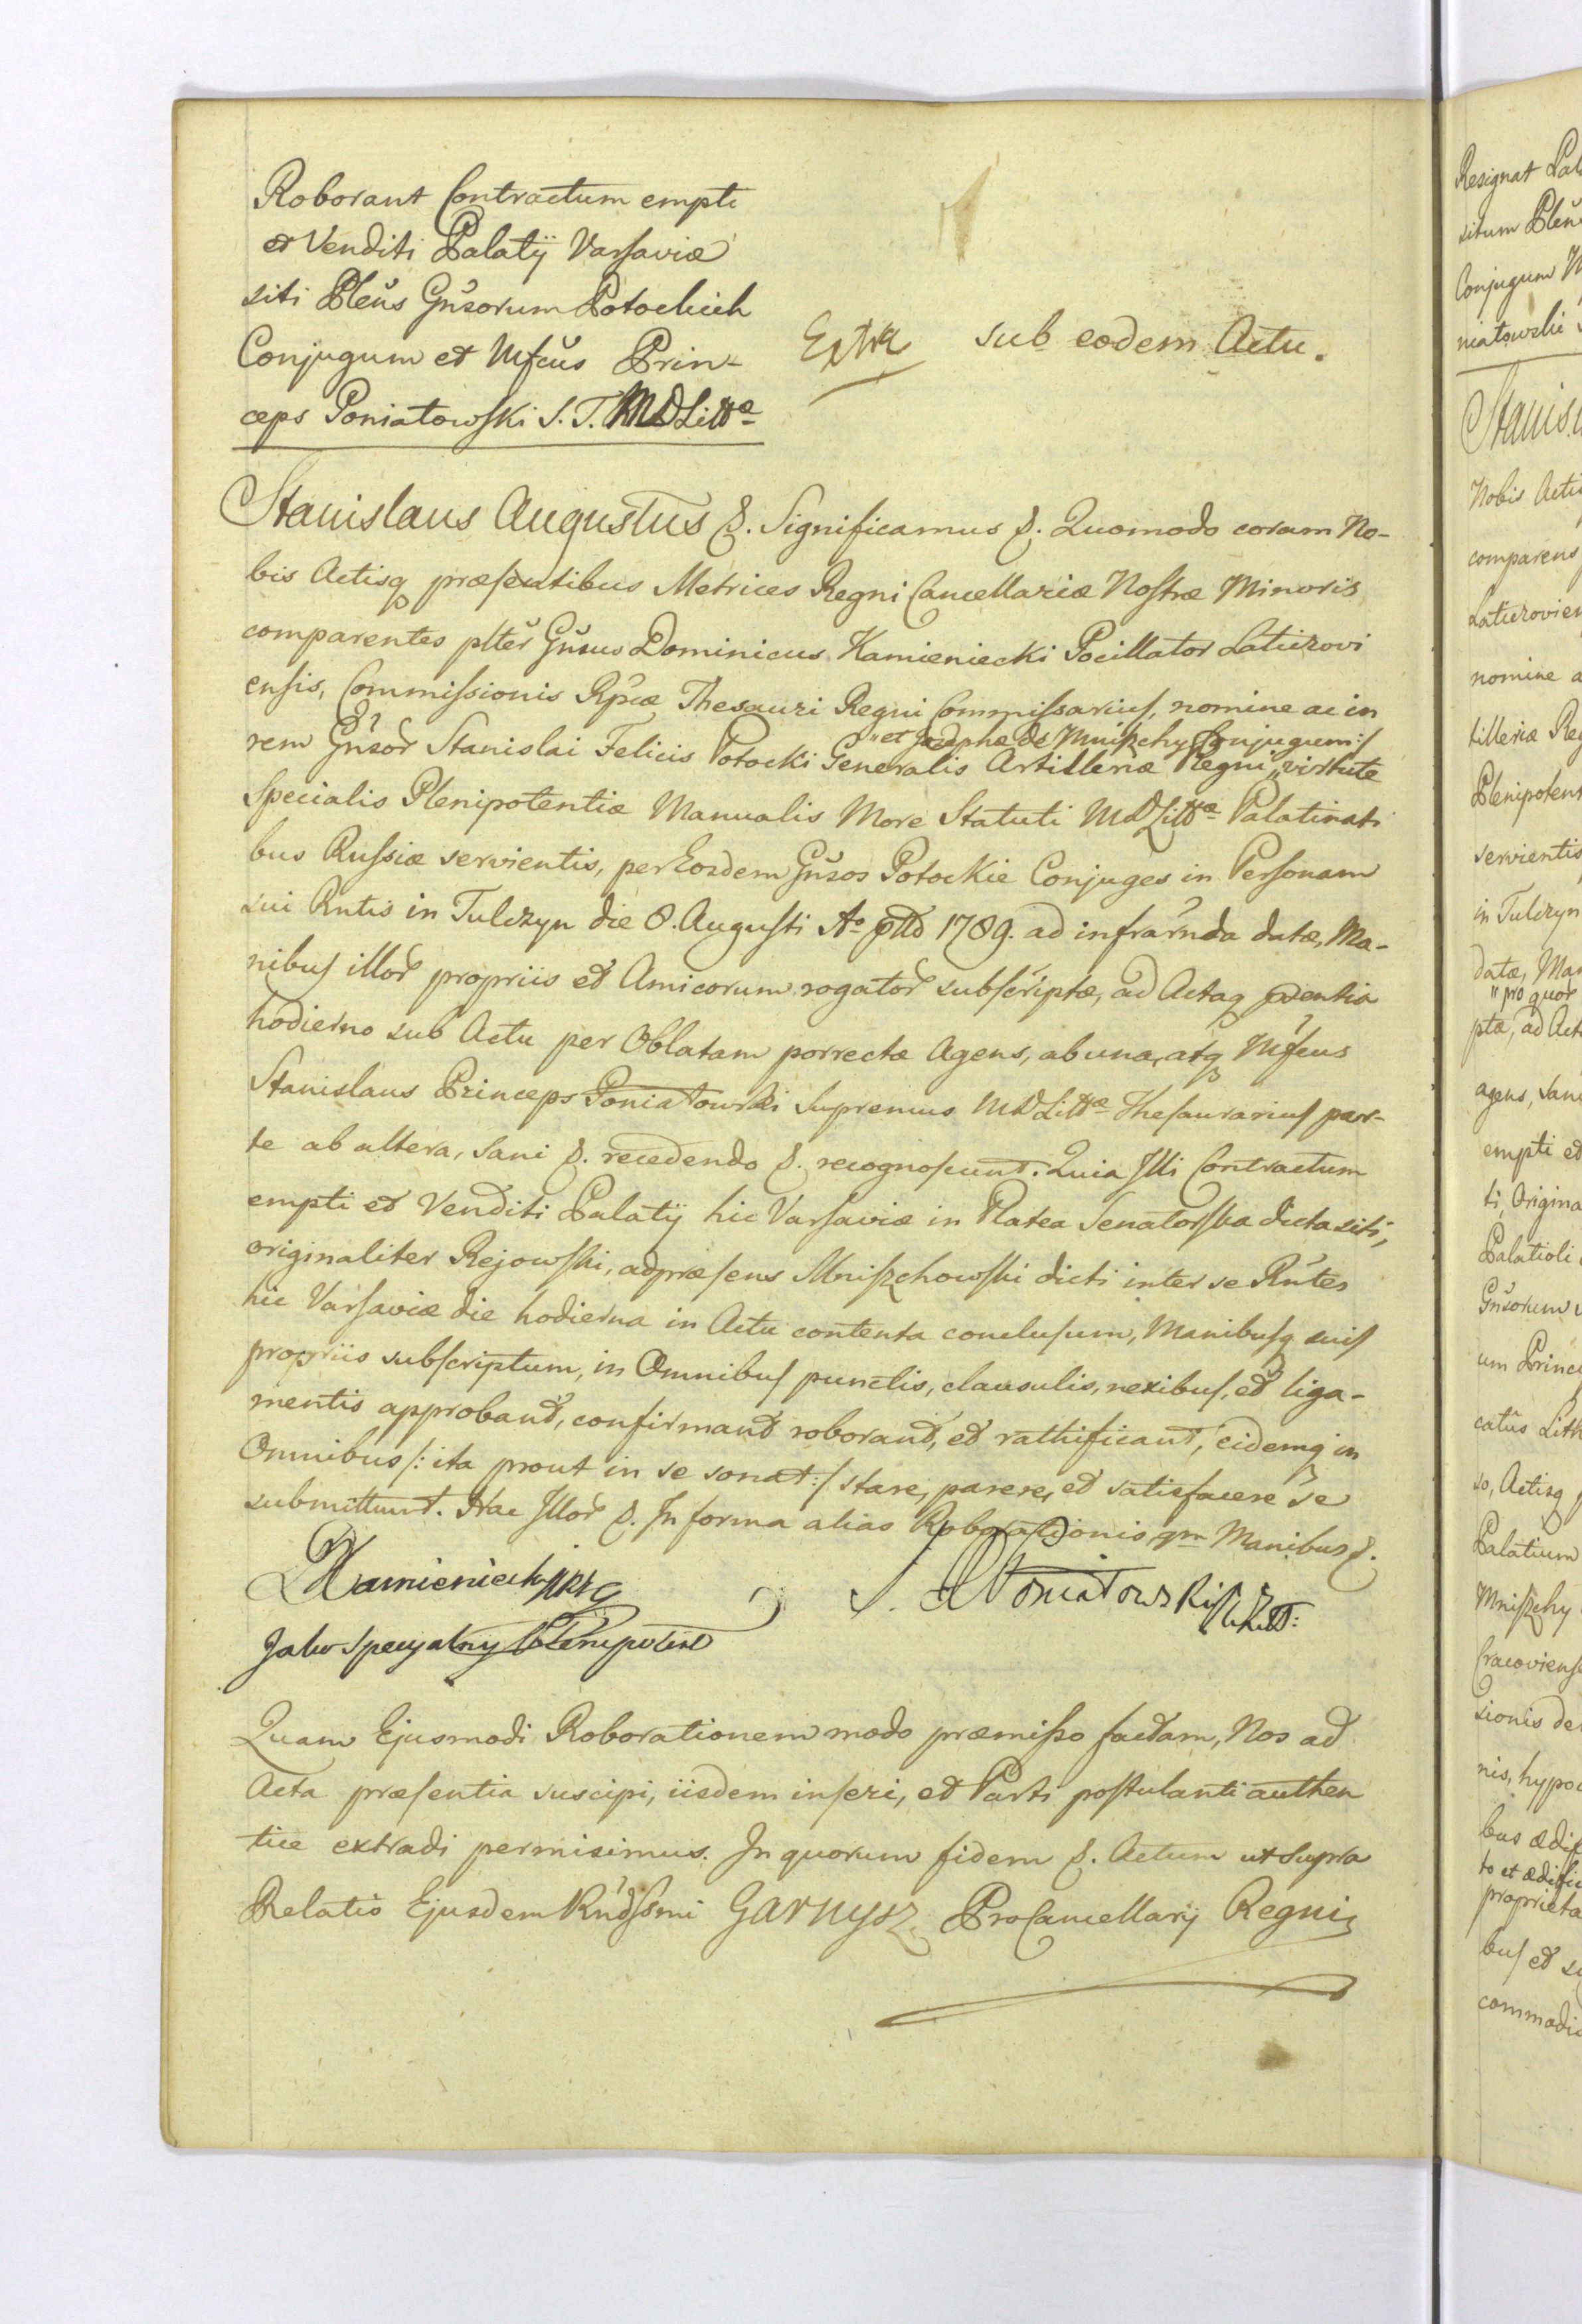 Roborant Contractum empti
et Venditi Palatij Varsaviæ
siti Pleńs Gńsorum Potockich
Conjugum et Mfcus Prin-
ceps Poniatowski S. T. MDLittæ
Extr sub eodem Actu.
Stanislaus Augustus &. Significamus &. Quomodo coram No-
bis Actisq præsentibus Metrices Regni Cancellariæ Nostræ Minoris
comparentes plter Gnsus Dominicus Kamieniecki Pocillator Laticzovi
ensis, Commissionis Rpcæ Thesauri Regni Commissarius, nomine ac in
"et Josephæ de Mniszchy Conjugum:/
rem Gnsor Stanislai Felicis Potocki Generalis Artilleriæ Regni "virtute
Specialis Plenipotentiæ Manualis More Statuti MDLittæ Palatinati
bus Russiæ servientis, per Eosdem Gnsos Potockie Conjuges in Personam
sui Rntis in Tulczyn die 8. Augusti Ao ptto 1789. ad infrarnda datæ, Ma-
nibus illor propriis et Amicorum rogator subscriptæ, ad Actaq pdentia
hodierno sub Actu per Oblatam porrectæ Agens, ab una, atq Mfcus
Stanislaus Princeps Poniatowski Supremus MDLittæ Thesaurarius par-
te ab altera, sani &. recedendo &. recognoscunt. Quia Illi Contractum
empti et Venditi Palatij hic Varsaviæ in Platea Senatorska dicta siti,
originaliter Rejowski, ad præsens Mniszchowski dicti inter se Rntes
hic Varsaviæ die hodierna in Actu contenta conclusum, Manibusq suis
propriis subscriptum, in Omnibus punctis, clausulis, nexibus, et liga-
mentis approbant, confirmant roborant, et rathificant, eidemq in
Omnibus /: ita prout in se sonat :/ stare, parere, et satisfacere se
submittunt. Hac Illor &. In forma alias Roborationis qm Manibus &.
DKamieniecki
S. X Poniatowski
Jako specyalny Plenipotent
Quam Ejusmodi Roborationem modo præmisso factam, Nos ad
Acta præsentia suscipi, iisdem inseri, et Parti postulanti authen
tice extradi permisimus. In quorum fidem &. Actum ut supra
Relatio Ejusdem Rndssmi Garnysz ProCancellarij Regni
Resignat Pal
situm Plen
Conjugum M
niatowski
Stanis
Nobis Acti
comparens
Laticzovien
nomine a
tilleriæ Reg
Plenipotent
servientis
in Tulczyn
datæ, Man
"pro quor
ptæ, ad Act
agens, sani
empti et
ti, Origina
Palatioli
Gnsorum
um Princ
catus Lith
so, Actisq
Palatium
Mniszchy
Cracoviens
sionis de
nis, hypo
bus ædif
to et ædific
proprieta
bus et su
commodi